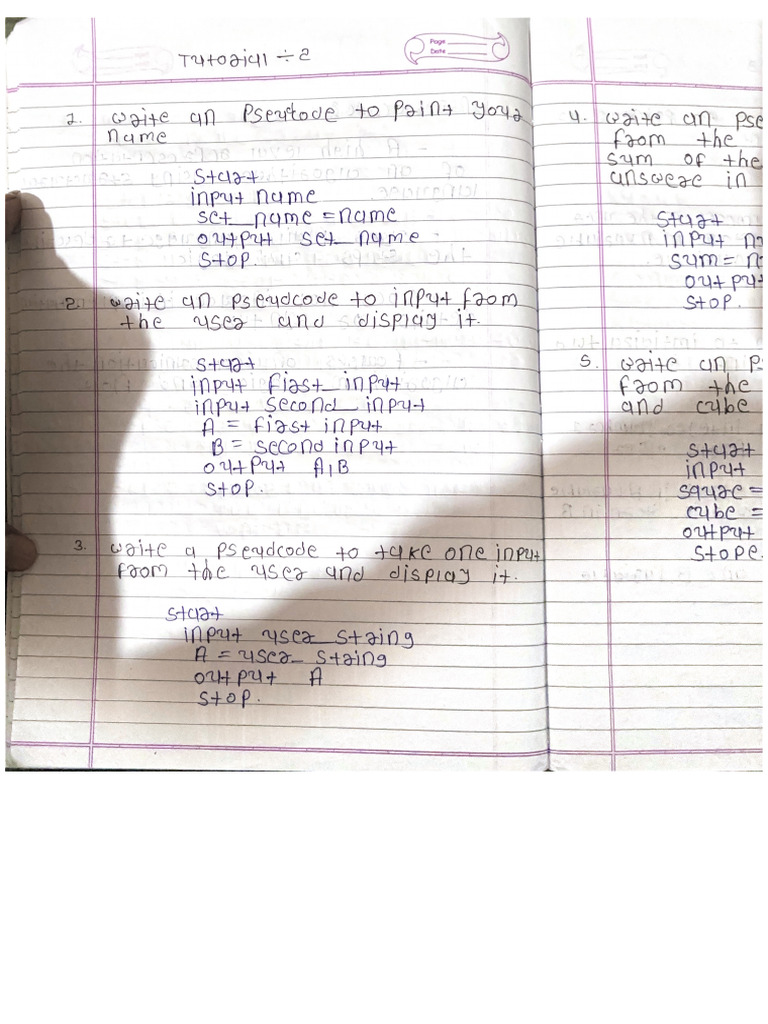 Page
Date
Tutorial ÷ 2
1. Write an Pseutode to Print your
name
Start
input name
set_name = name
output set_name
Stop.
2. Write an pseudcode to input from
the user and display it.
Start
input first_input
input second_input
A = first input
B = second input
output A,B
Stop.
3. Write a pseudcode to take one input
from the user and display it.
Start
input user_string
A = user_string
output A
Stop.
4. Write an pse
from the
sum of the
answere in
Start
input n
sum = n
outpu
Stop.
5. Write an p
from the
and cube
Start
input
squre =
cube =
output
Stope.